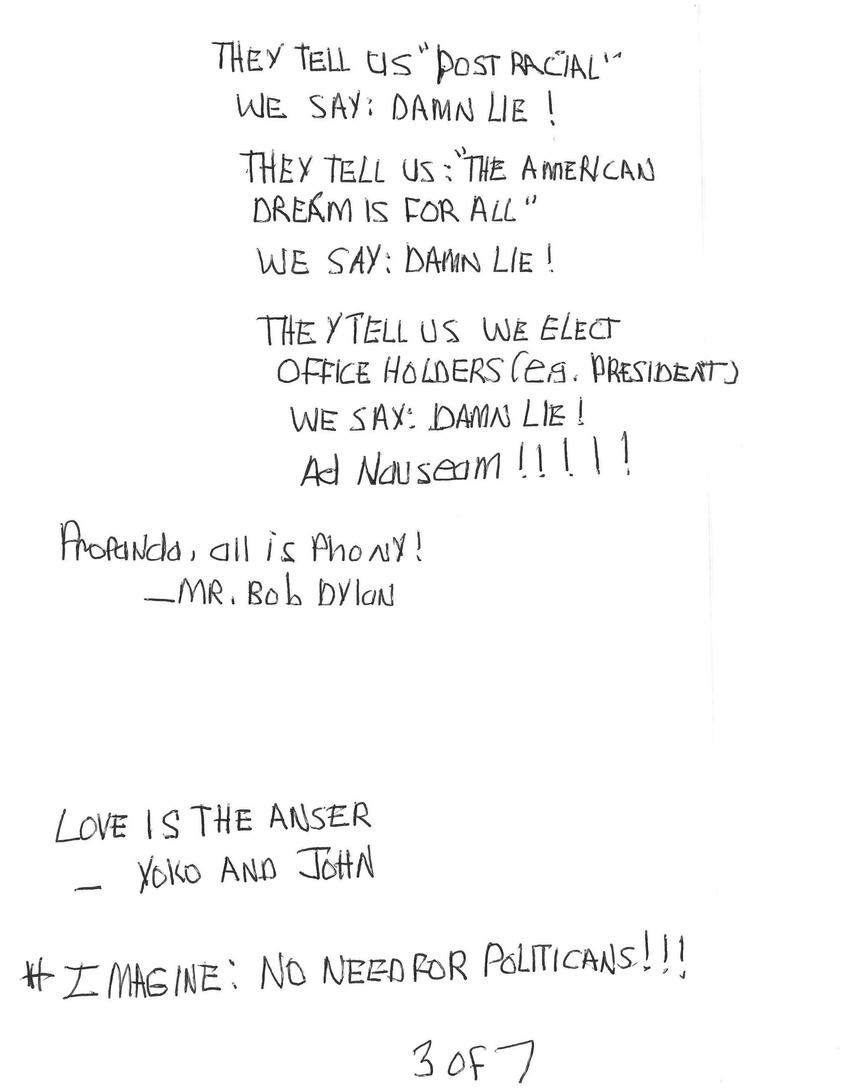 THEY TELL US "POST RACIAL"
WE SAY: DAMN LIE!
THEY TELL US: "THE AMERICAN
DREAM IS FOR ALL"
WE SAY: DAMN LIE!
THEY TELL US WE ELECT
OFFICE HOLDERS (eg. PRESIDENT)
WE SAY: DAMN LIE!
Ad Nauseam!!!!!
PropaNda, all is PhoNY!
—MR. Bob DYlaN
LOVE IS THE ANSER
— YOKO AND JOHN
# IMAGINE: NO NEED FOR POLITICANS!!!
3 OF 7